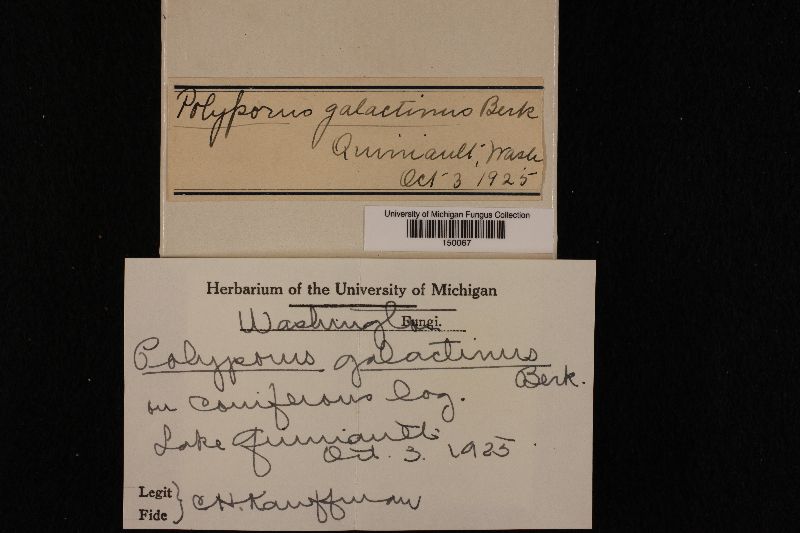 Polyporus galactinus Berk
Quiniault, Wash
Oct 3 1925
University of Michigan Fungus Collection
150067
Herbarium of the University of Michigan
Washington Fungi.
Polyporus galactinus
Berk.
on coniferous log.
Lake Quiniault
Oct. 3. 1925.
Legit
Fide } C H. Kauffman